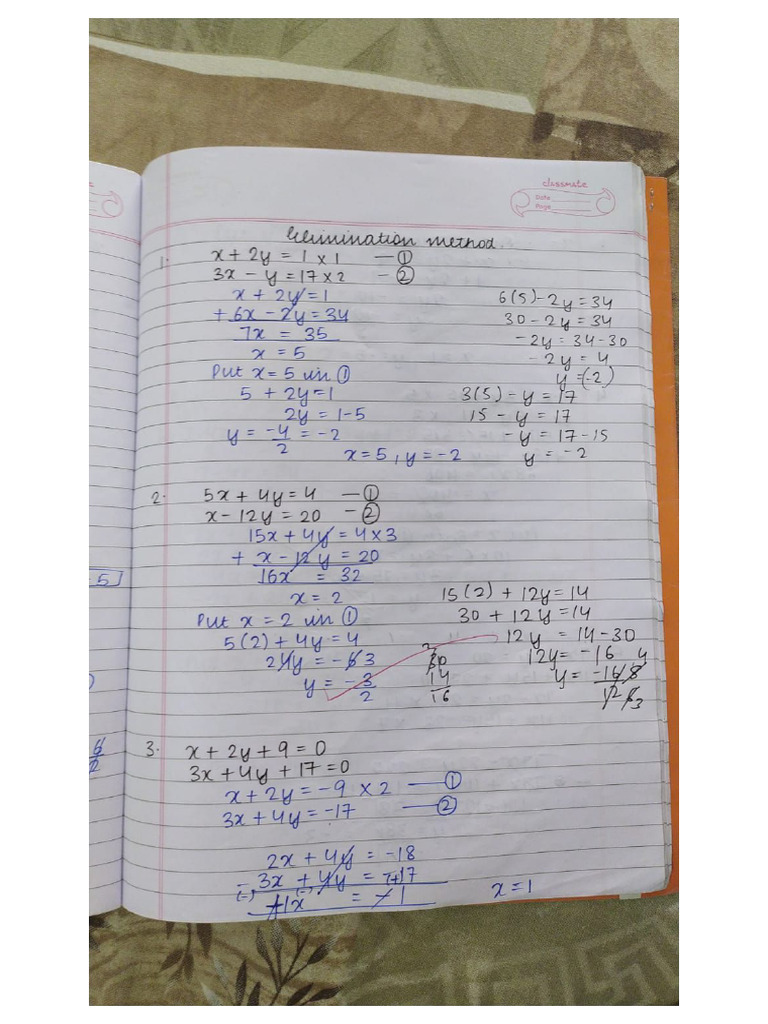 classmate
Date
Page
Elimination method.
1. x + 2y = 1 × 1 — ①
3x − y = 17 × 2 − ②
x + 2y = 1
+ 6x − 2y = 34
7x = 35
x = 5
Put x = 5 in ①
5 + 2y = 1
2y = 1-5
y = -4/2 = -2
x = 5, y = -2
6(5) - 2y = 34
30 - 2y = 34
- 2y = 34 - 30
- 2y = 4
y = (-2)
3(5) - y = 17
15 - y = 17
- y = 17 - 15
y = -2
2. 5x + 4y = 4 — ①
x - 12y = 20 − ②
15x + 4y = 4 × 3
+ x - 12y = 20
16x = 32
x = 2
Put x = 2 in ①
5(2) + 4y = 4
24y = -6 3
y = -3/2
15(2) + 12y = 14
30 + 12y = 14
12y = 14 - 30
12y = -16
y = -16 8 4/12 6 3
2
30
14
16
3. x + 2y + 9 = 0
3x + 4y + 17 = 0
x + 2y = -9 × 2 — ①
3x + 4y = -17 — ②
2x + 4y = -18
- 3x + 4y = -+17
(-) (-)
-1x = -1
x = 1
5
6/2